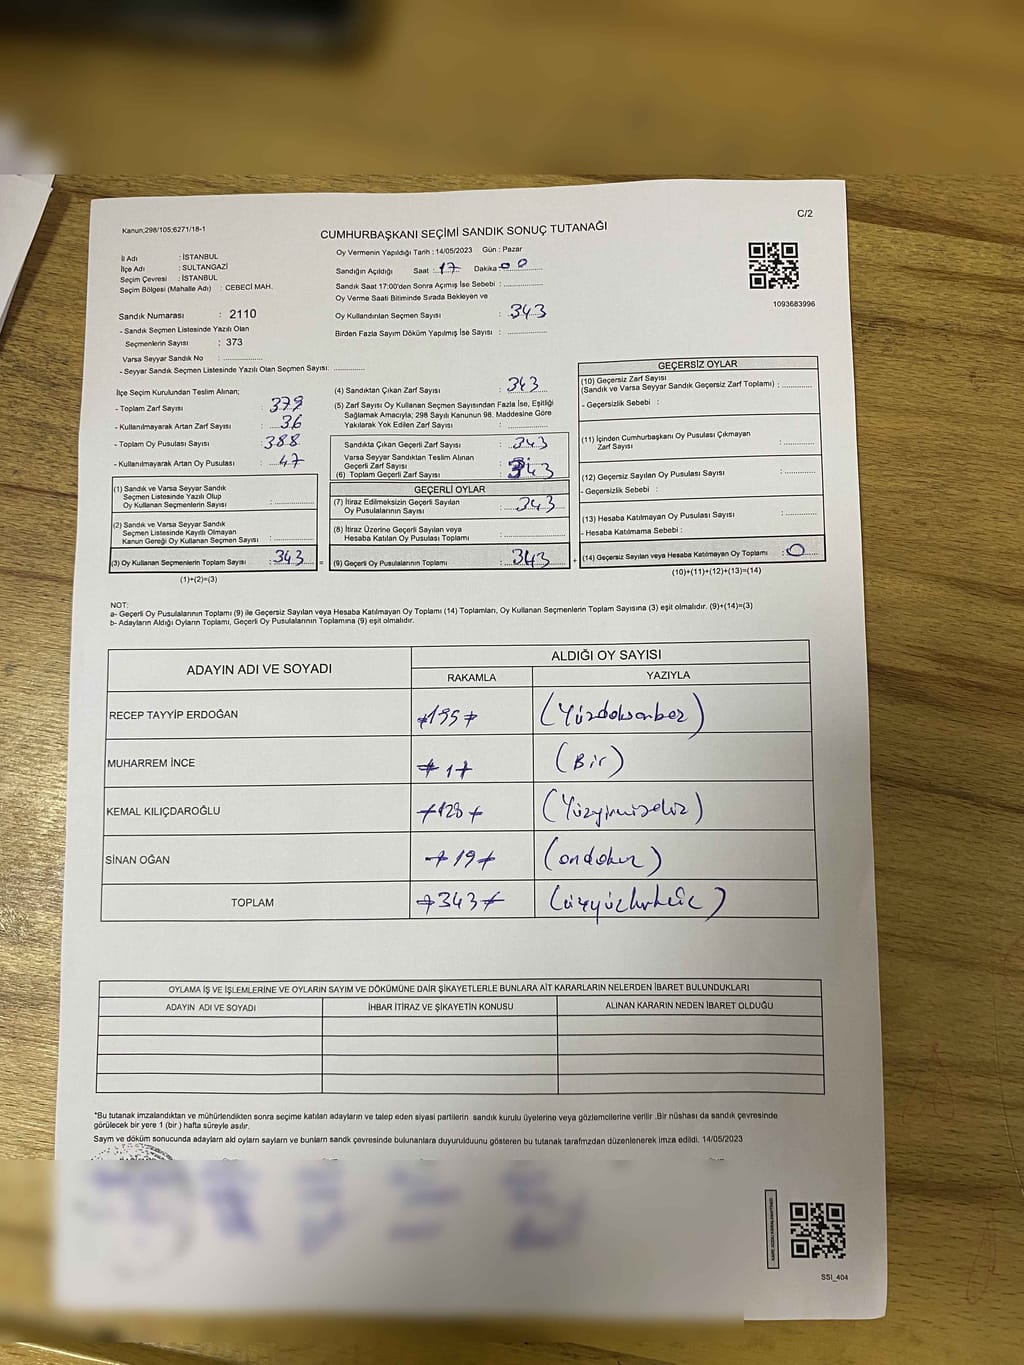 C/2
Kanun;298/105;6271/18-1
CUMHURBAŞKANI SEÇİMİ SANDIK SONUÇ TUTANAĞI
İl Adı : İSTANBUL
İlçe Adı : SULTANGAZİ
Seçim Çevresi : İSTANBUL
Seçim Bölgesi (Mahalle Adı) : CEBECİ MAH.
Sandık Numarası : 2110
- Sandık Seçmen Listesinde Yazılı Olan
Seçmenlerin Sayısı : 373
Varsa Seyyar Sandık No : ..............
- Seyyar Sandık Seçmen Listesinde Yazılı Olan Seçmen Sayısı: ............
Oy Vermenin Yapıldığı Tarih : 14/05/2023 Gün : Pazar
Sandığın Açıldığı Saat : 17 Dakika 00
Sandık Saat 17:00'den Sonra Açımış İse Sebebi : ..............
Oy Verme Saati Bitiminde Sırada Bekleyen ve
Oy Kullandırılan Seçmen Sayısı : 343
Birden Fazla Sayım Döküm Yapılmış İse Sayısı : ..............
1093683996
İlçe Seçim Kurulundan Teslim Alınan;
- Toplam Zarf Sayısı : 379
- Kullanılmayarak Artan Zarf Sayısı : 36
- Toplam Oy Pusulası Sayısı : 388
- Kullanılmayarak Artan Oy Pusulası : 47
(1) Sandık ve Varsa Seyyar Sandık
Seçmen Listesinde Yazılı Olup
Oy Kullanan Seçmenlerin Sayısı : ..............
(2) Sandık ve Varsa Seyyar Sandık
Seçmen Listesinde Kayıtlı Olmayan
Kanun Gereği Oy Kullanan Seçmen Sayısı : ..............
(3) Oy Kullanan Seçmenlerin Toplam Sayısı : 343 =
(1)+(2)=(3)
(4) Sandıktan Çıkan Zarf Sayısı : 343
(5) Zarf Sayısı Oy Kullanan Seçmen Sayısından Fazla İse, Eşitliği
Sağlamak Amacıyla; 298 Sayılı Kanunun 98. Maddesine Göre
Yakılarak Yok Edilen Zarf Sayısı : ..............
Sandıkta Çıkan Geçerli Zarf Sayısı : 343
Varsa Seyyar Sandıktan Teslim Alınan
Geçerli Zarf Sayısı : ..............
(6) Toplam Geçerli Zarf Sayısı : 343
GEÇERLİ OYLAR
(7) İtiraz Edilmeksizin Geçerli Sayılan
Oy Pusulalarının Sayısı : 343
(8) İtiraz Üzerine Geçerli Sayılan veya
Hesaba Katılan Oy Pusulası Toplamı : ..............
(9) Geçerli Oy Pusulalarının Toplamı : 343 +
GEÇERSİZ OYLAR
(10) Geçersiz Zarf Sayısı
(Sandık ve Varsa Seyyar Sandık Geçersiz Zarf Toplamı) : ..............
- Geçersizlik Sebebi :
(11) İçinden Cumhurbaşkanı Oy Pusulası Çıkmayan
Zarf Sayısı : ..............
(12) Geçersiz Sayılan Oy Pusulası Sayısı : ..............
- Geçersizlik Sebebi :
(13) Hesaba Katılmayan Oy Pusulası Sayısı : ..............
- Hesaba Katılmama Sebebi :
(14) Geçersiz Sayılan veya Hesaba Katılmayan Oy Toplamı : 0
(10)+(11)+(12)+(13)=(14)
NOT:
a- Geçerli Oy Pusulalarının Toplamı (9) ile Geçersiz Sayılan veya Hesaba Katılmayan Oy Toplamı (14) Toplamları, Oy Kullanan Seçmenlerin Toplam Sayısına (3) eşit olmalıdır. (9)+(14)=(3)
b- Adayların Aldığı Oyların Toplamı, Geçerli Oy Pusulalarının Toplamına (9) eşit olmalıdır.
ADAYIN ADI VE SOYADI ALDIĞI OY SAYISI
RAKAMLA YAZIYLA
RECEP TAYYİP ERDOĞAN 195 (Yüzdoksanbeş)
MUHARREM İNCE 1 (Bir)
KEMAL KILIÇDAROĞLU 128 (Yüzyirmisekiz)
SİNAN OĞAN 19 (ondokuz)
TOPLAM 343 (üçyüzkırküç)
OYLAMA İŞ VE İŞLEMLERİNE VE OYLARIN SAYIM VE DÖKÜMÜNE DAİR ŞİKAYETLERLE BUNLARA AİT KARARLARIN NELERDEN İBARET BULUNDUKLARI
ADAYIN ADI VE SOYADI İHBAR İTİRAZ VE ŞİKAYETİN KONUSU ALINAN KARARIN NEDEN İBARET OLDUĞU
*Bu tutanak imzalandıktan ve mühürlendikten sonra seçime katılan adayların ve talep eden siyasi partilerin sandık kurulu üyelerine veya gözlemcilerine verilir .Bir nüshası da sandık çevresinde
görülecek bir yere 1 (bir ) hafta süreyle asılır.
Sayım ve döküm sonucunda adayların ald oyların sayların ve bunların sandık çevresinde bulunanlara duyurulduunu gösteren bu tutanak tarafmzdan düzenlenerek imza edildi. 14/05/2023
SSI_404